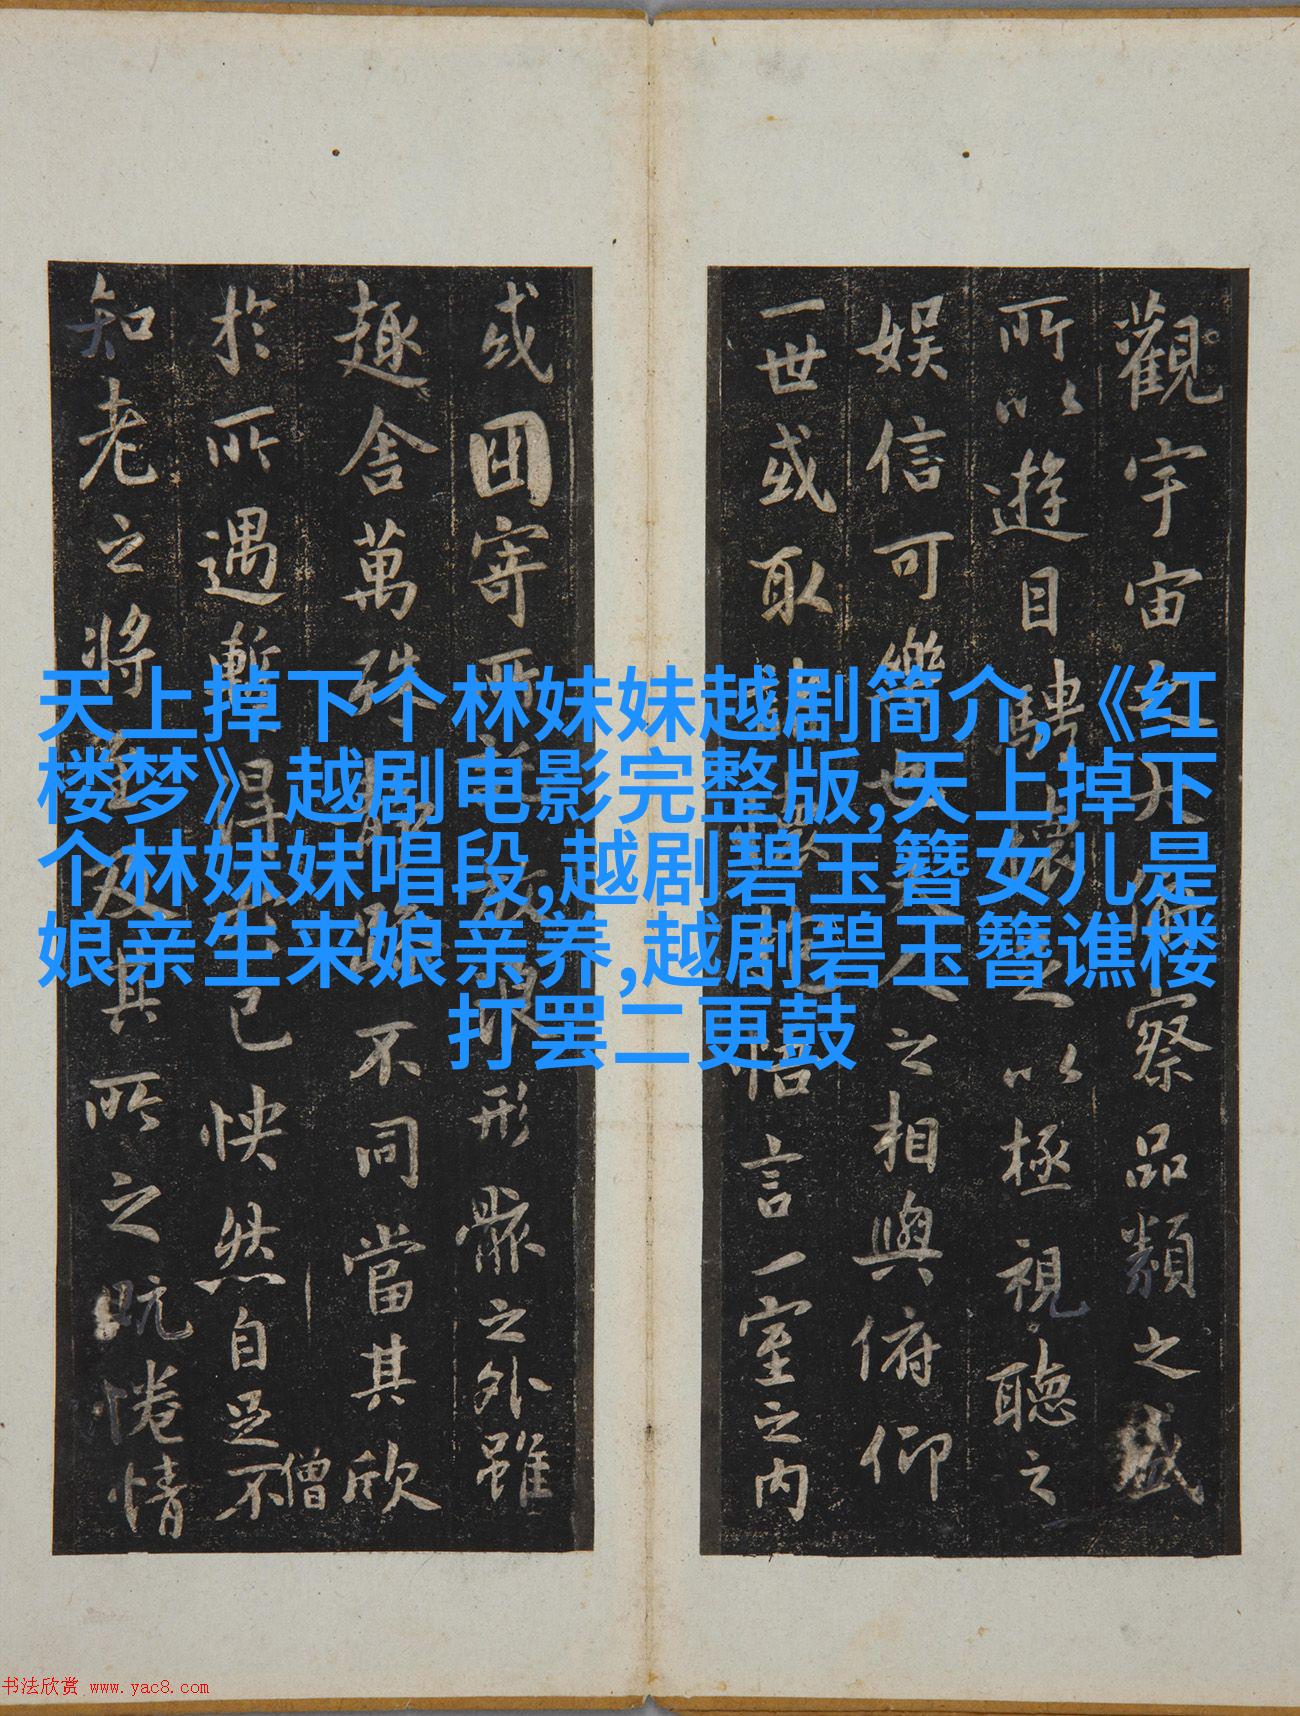 天上掉下个林妹妹越剧简介,《红
楼梦》越剧电影完整版,天上掉下
个林妹妹唱段,越剧碧玉簪女儿是
娘亲生来娘亲养,越剧碧玉簪谯楼
打罢二更鼓
觀宇宙之大察品類之盛
所以遊目騁懷以極視聽之
娛信可樂之相與俯仰
一世或取悟言一室之內
或因寄所浪形骸之外雖
趣舍萬殊不同當其欣
於所遇暫得己快然自足不
僧
知老之將及其所之既惓情
书法欣赏 www.yac8.com